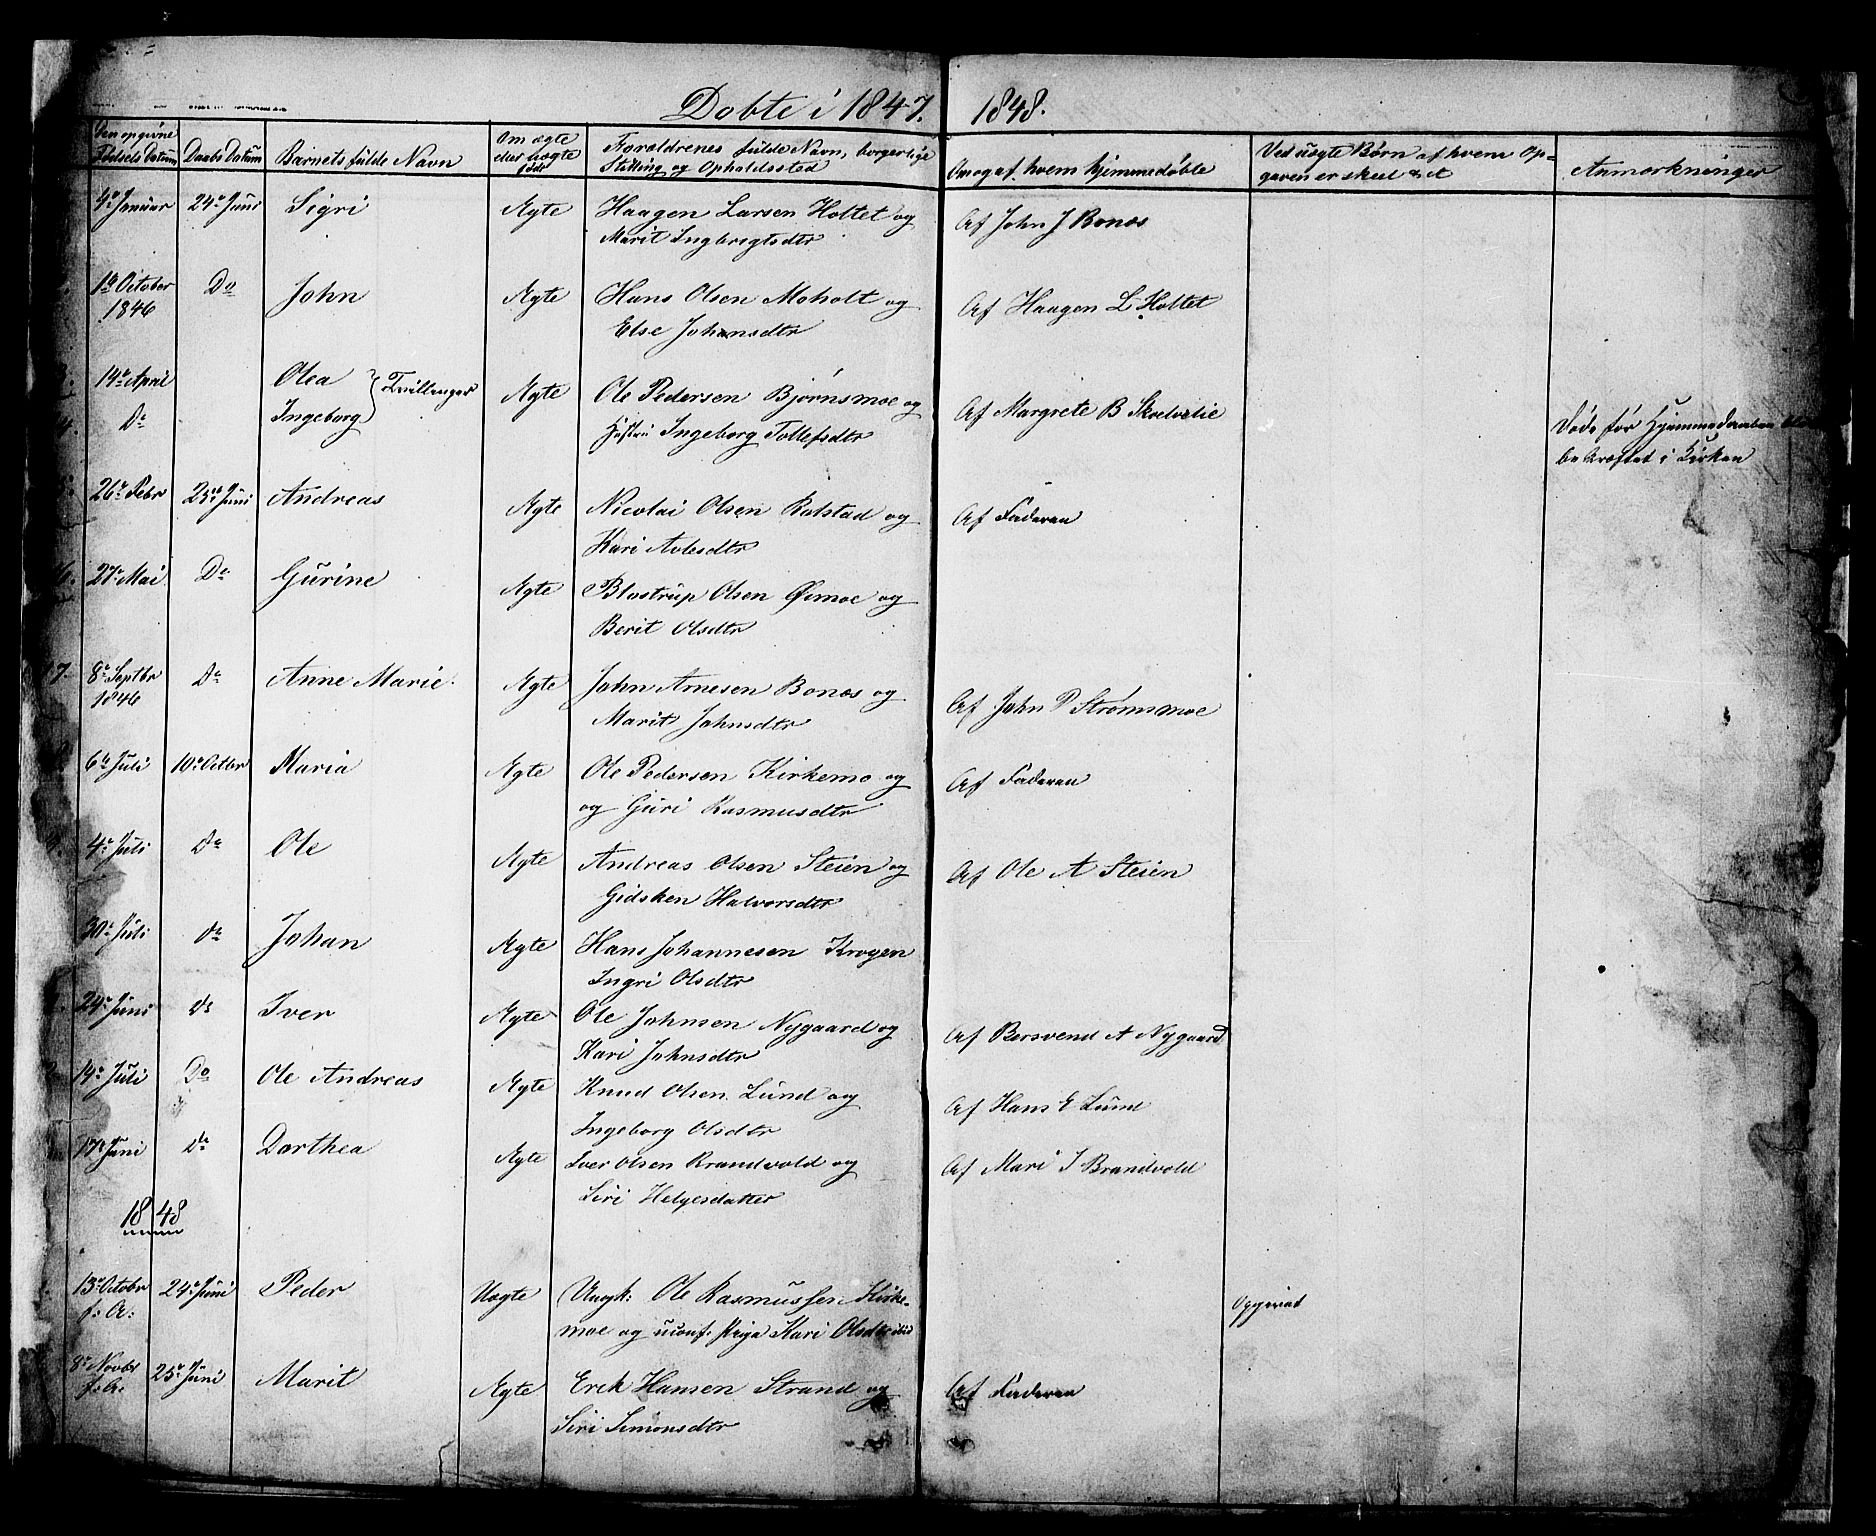 Døbte i 1847. 1848.
Den opgivne Fødsels Datum
Daabs Datum
Barnets fulde Navn
Om ægte eller uægte født
Forældrenes fulde Navn, borgerlige Stilling og Opholdssted
Om og af hvem hjemmedøbte
Ved uægte Børn af hvem Opgaven er skeet &ct
Anmærkninger
4de Januar 24de Juni Sigri Ægte Haagen Larsen Holtet og Af John J Bonæs
Marit Ingbrigtsdtr
19 October Do John Ægte Hans Olsen Moholt og Af Haagen L Holtet
1846 Else Johansdtr
14de April Olea Tvillinger Ægte Ole Pedersen Bjørnsmoe og Af Margrete B
Do Ingeborg Ingeborg Tollefsdtr Døde før Hjemmedaaben
bekræftet i Kirken
26de Febr 25de Juni Andreas Ægte Nicolai Olsen Ralstad og Af Faderen
Kari
27de Mai Do Gurine Ægte Blostrup Olsen Øvmoe og
Berit Olsdtr
7. 8de Septbr Do Anne Marie Ægte John Arnesen Bonæs og Af John P Strømsmoe
1846 Marit Johnsdtr
6te Juli 10de Octbr Maria Ægte Ole Pedersen Kirkemo og Af Faderen
og Guri Rasmusdtr
4de Juli Do Ole Ægte Andreas Olsen Steien og Af Ole A Steien
Gidsken Halvorsdtr
30de Juli do Johan Ægte Hans Johannesen Krogen
Ingri Olsdtr
24de Juni do Iver Ægte Ole Johnsen Nygaard og Af Bersvend A Nygaard
Kari Johnsdtr
14de Juli Do Ole Andreas Ægte Knud Olsen Lund og Af Hans E Lund
Ingeborg Olsdtr
17de Juni Do Dorthea Ægte Iver Olsen Brandvold og Af Mari I Brandvold
Siri Helgesdatter
1848
13de Octobr 24de Juni Peder Uægte Ungk: Ole Rasmussen Kirke-
f: A: moe og uconf: Piga Kari Olsdtr ibid
8de Novbr 25de Juni Marit Ægte Erik Hansen Strand og Af Faderen
f: A: Siri Simonsdtr